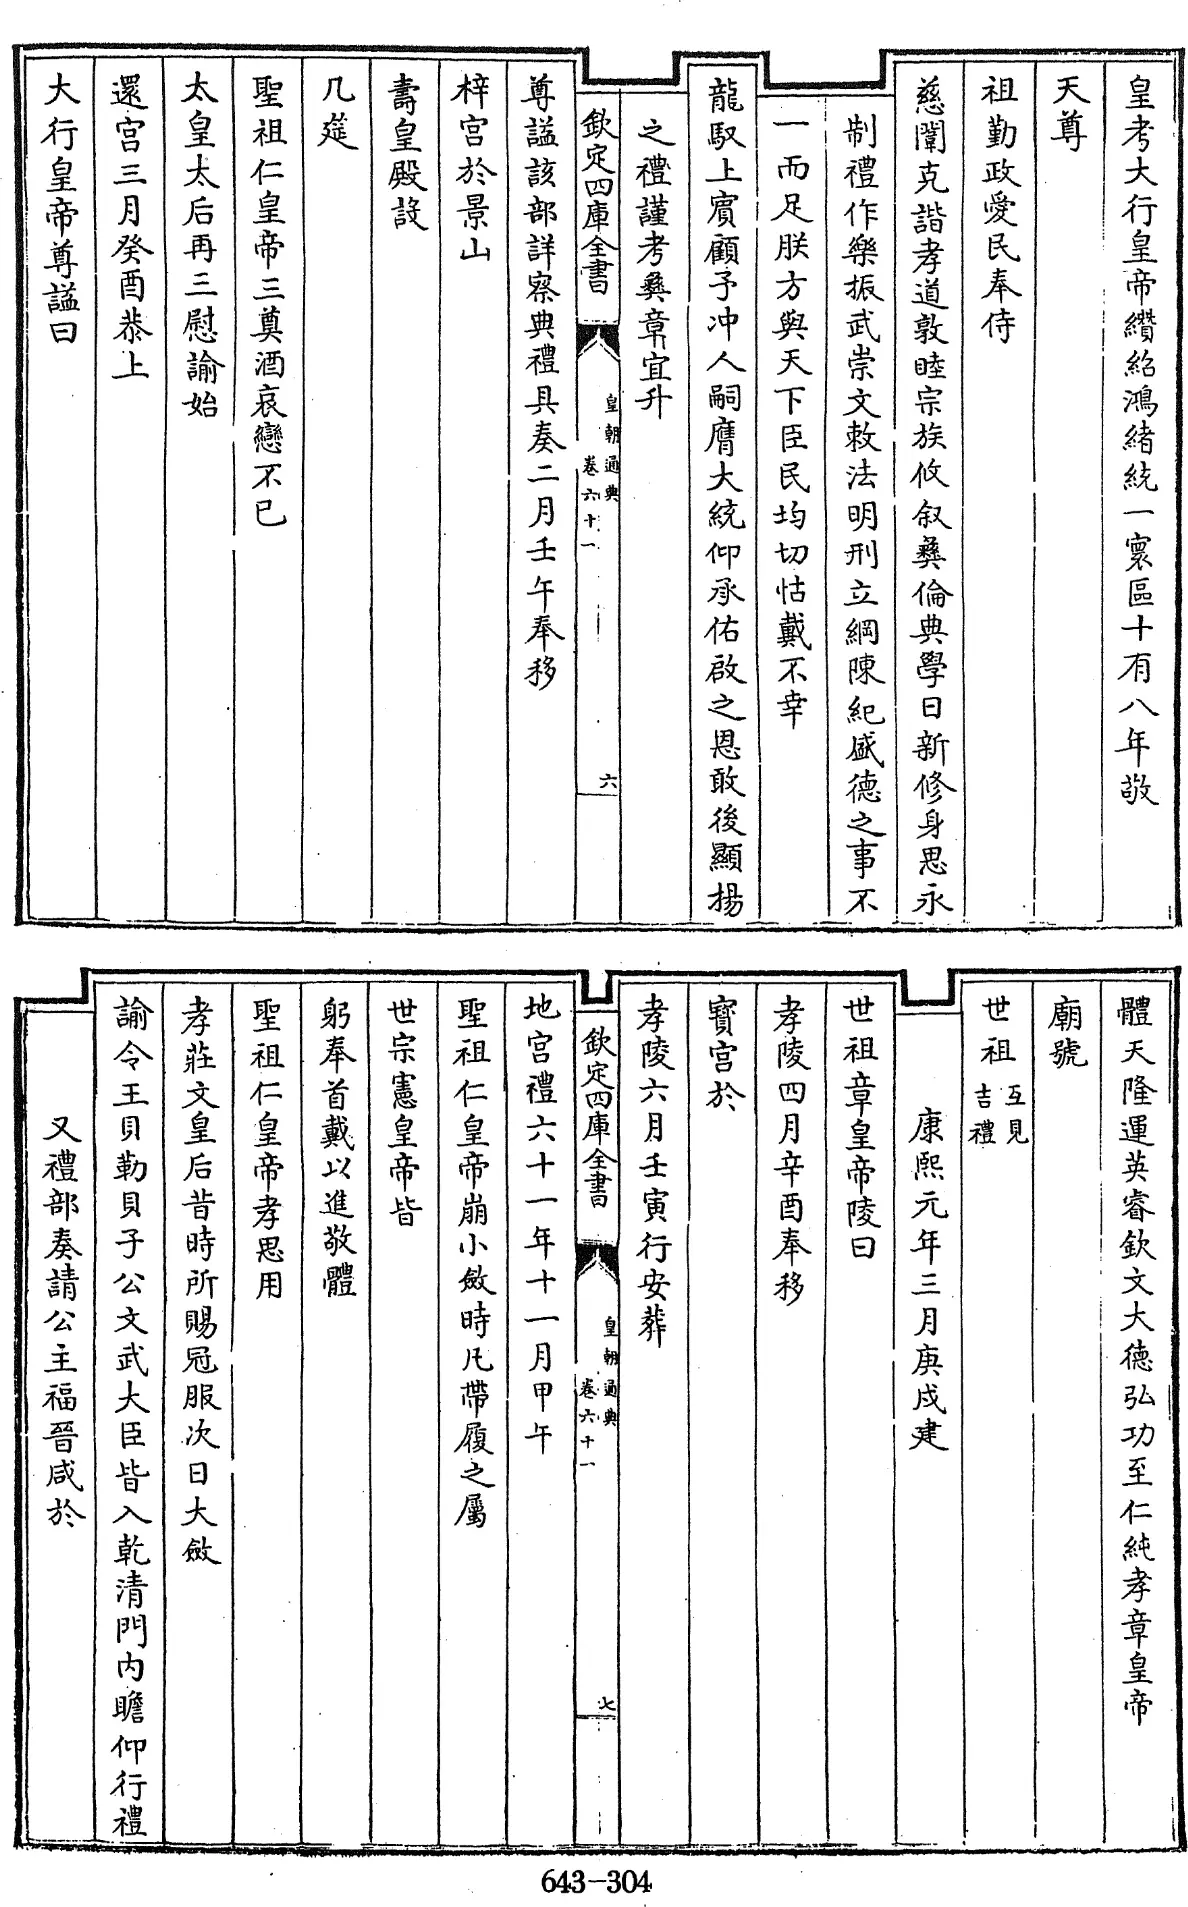 皇考大行皇帝纘紹鴻緒統一寰區十有八年敬
天尊
祖勤政愛民奉侍
慈闈克諧孝道敦睦宗族攸叙彝倫典學日新修身思永
制禮作樂振武崇文敕法明刑立綱陳紀盛德之事不
一而足朕方與天下臣民均切怙戴不幸
龍馭上賓顧予冲人嗣膺大統仰承佑啟之恩敢後顯揚
之禮謹考彝章宜升
欽定四庫全書
皇朝通典
卷六十一
六
尊謚該部詳察典禮具奏二月壬午奉移
梓宮於景山
壽皇殿設
几筵
聖祖仁皇帝三奠酒哀戀不已
太皇太后再三慰諭始
還宮三月癸酉恭上
大行皇帝尊謚曰
體天隆運英睿欽文大德弘功至仁純孝章皇帝
廟號
世祖互見吉禮
康熙元年三月庚戌建
世祖章皇帝陵曰
孝陵四月辛酉奉移
寳宮於
孝陵六月壬寅行安葬
欽定四庫全書
皇朝通典
卷六十一
七
地宮禮六十一年十一月甲午
聖祖仁皇帝崩小斂時凡帶履之屬
世宗憲皇帝皆
躬奉首戴以進敬體
聖祖仁皇帝孝思用
孝莊文皇后昔時所賜冠服次日大斂
諭令王貝勒貝子公文武大臣皆入乾清門内瞻仰行禮
又禮部奏請公主福晉咸於
643-304